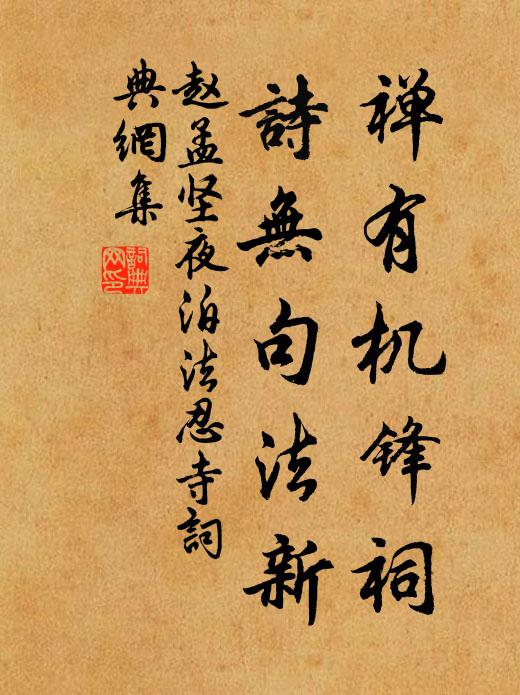 禅有机锋祠
詩無句法新
赵孟坚夜泊法忍寺詞
典網集
詞典网印